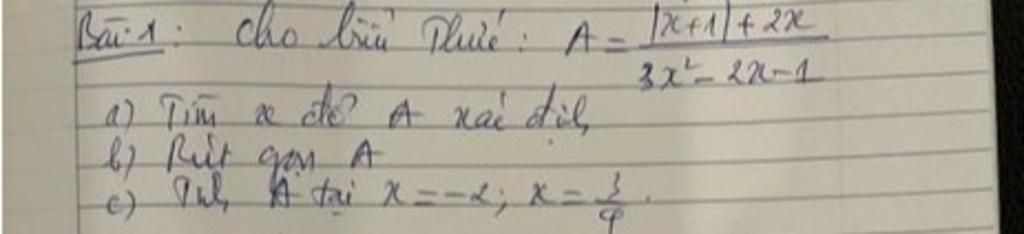 Bài 1: Cho biểu thức: A = |x+1| + 2x / 3x² - 2x - 1
a) Tìm x để A xác định
b) Rút gọn A
c) Tính A tại x = -2; x = 3/4.